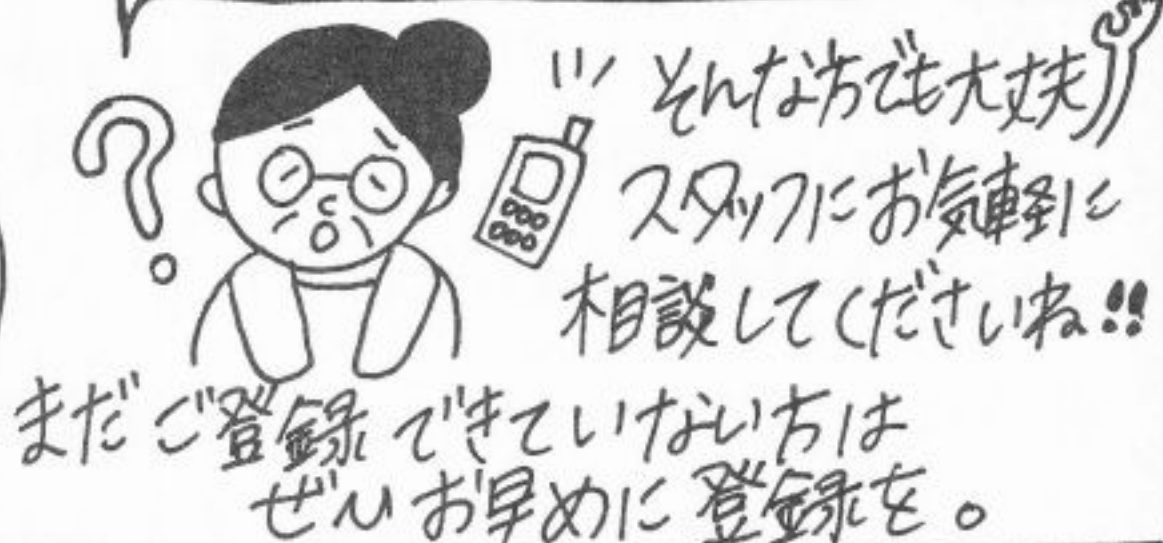 そんな方でも大丈夫
スタッフにお気軽に
相談してくださいね!!
まだご登録できていない方は
ぜひお早めに登録を。